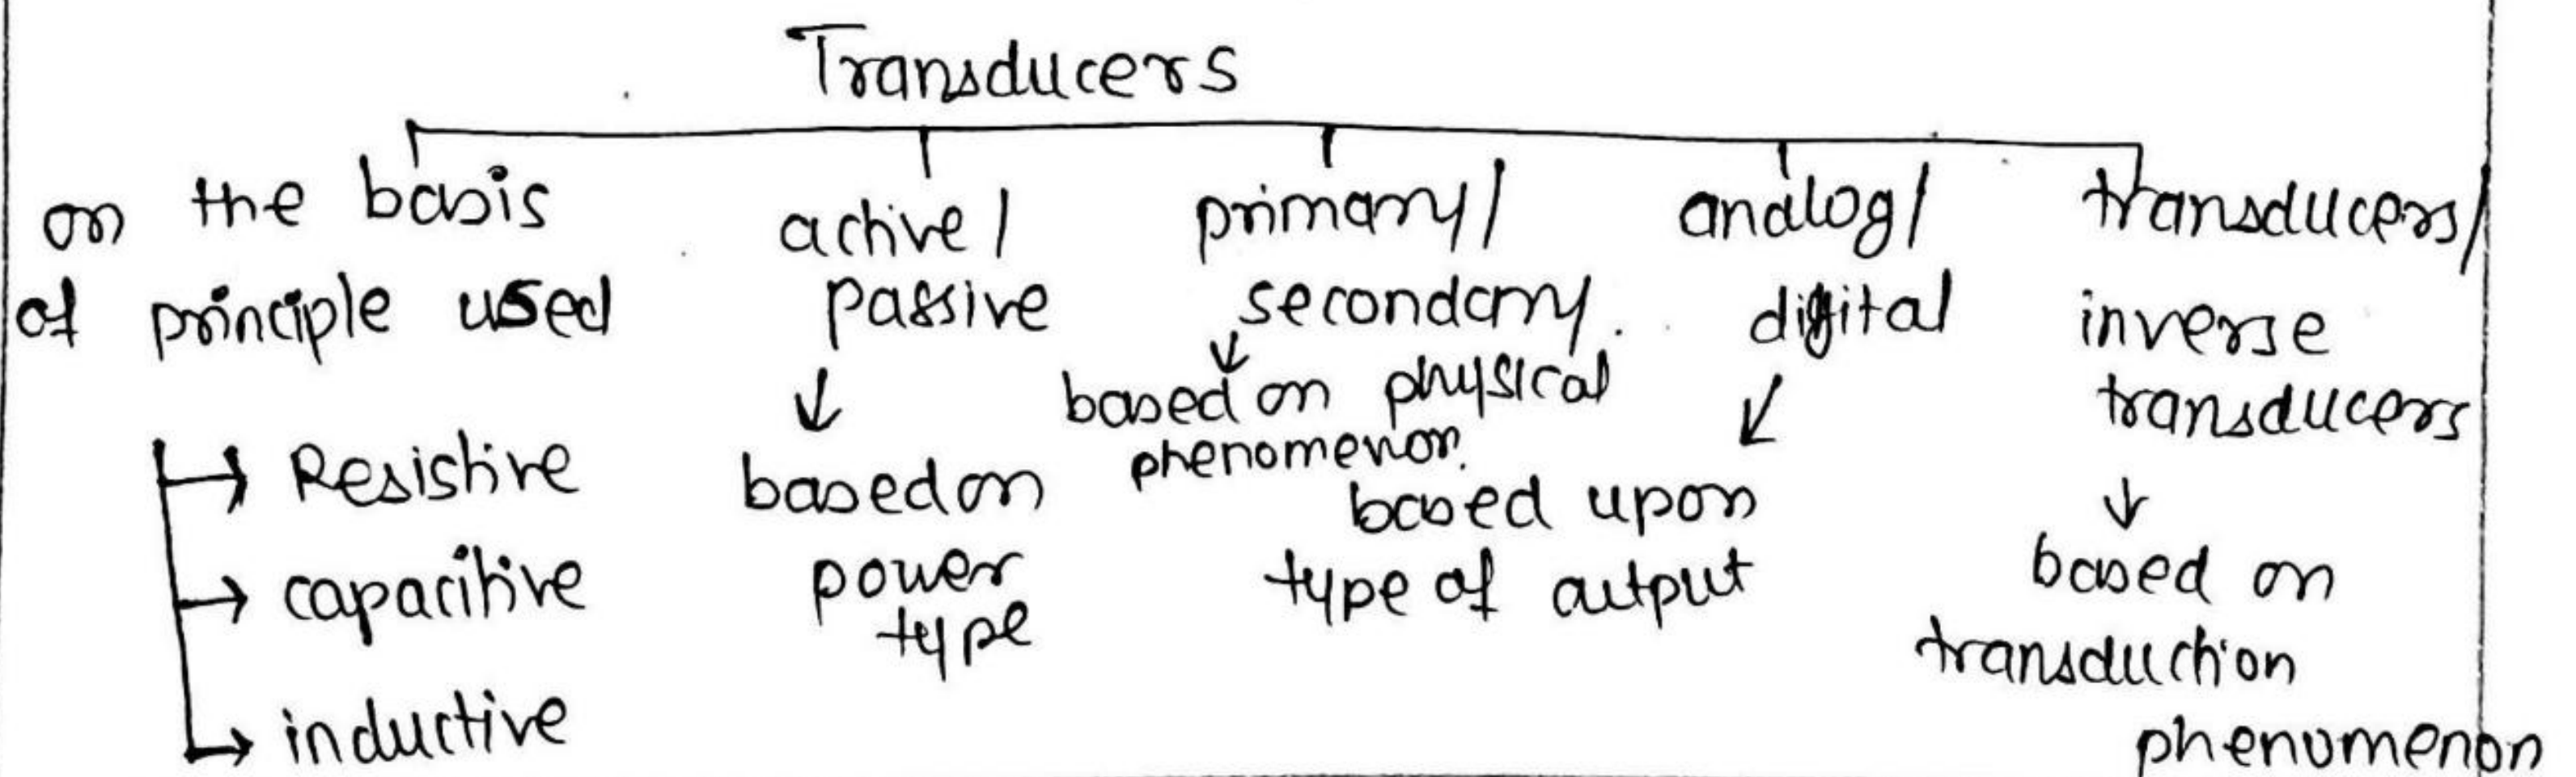 Transducers
on the basis
of principle used
Resistive
capacitive
inductive
active/
passive
based on
power
type
primary/
secondary.
based on physical
phenomenon.
analog/
digital
based upon
type of output
transducers/
inverse
transducers
based on
transduction
phenomenon